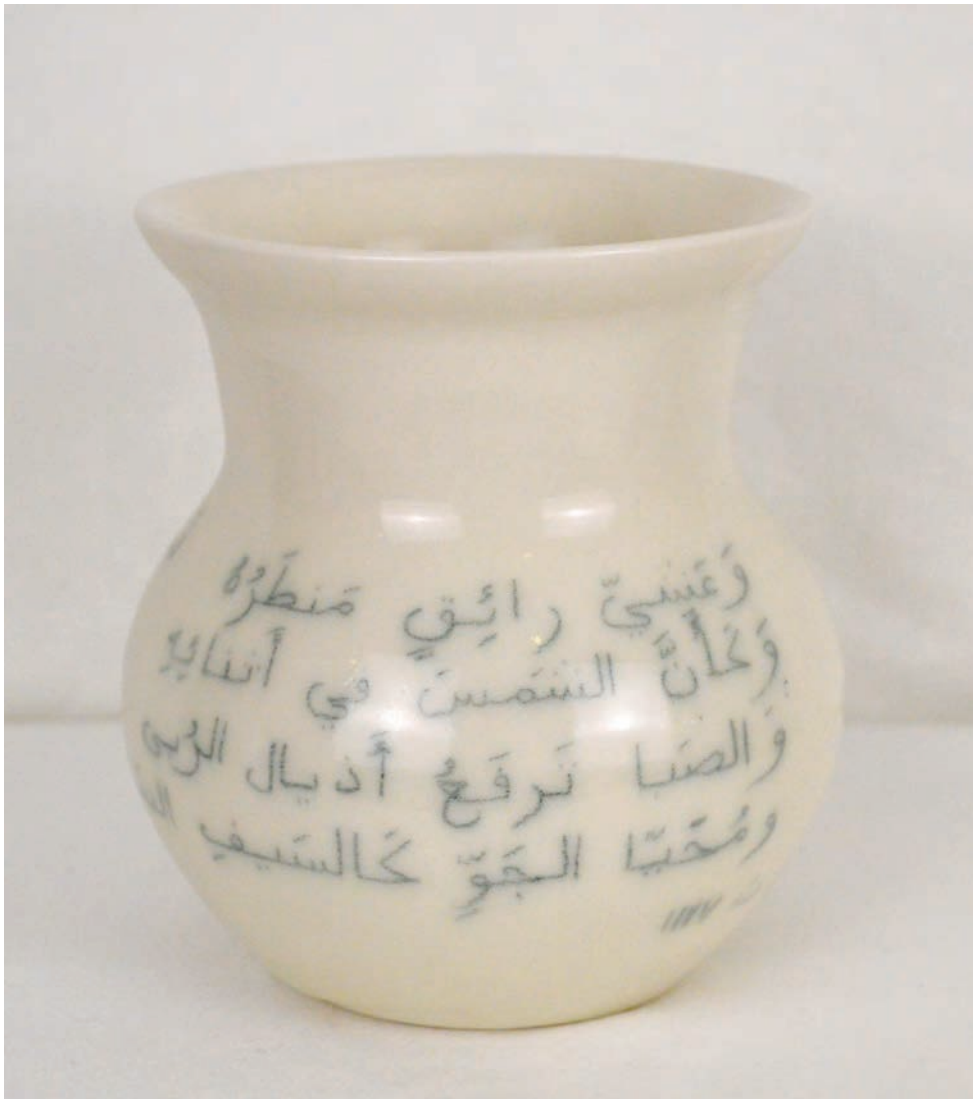 وَعَشيّ رائِقٍ مَنظَرُهُ
وَكَأَنَّ الشَمسَ في أَثنائِهِ
وَالصَبا تَرفَعُ أَذيال الرُبى
ومُحَيّا الجَوِّ كَالسَيفِ
١١٧٧